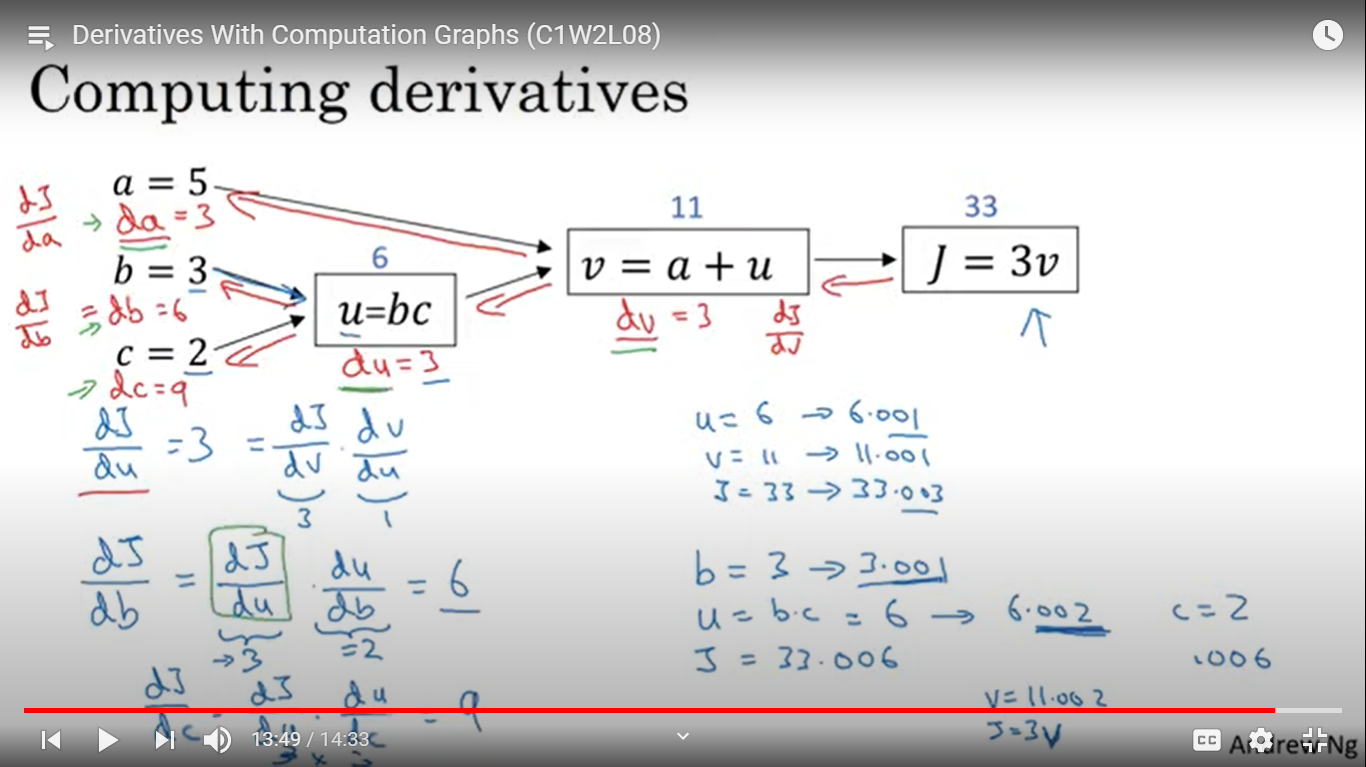 Derivatives With Computation Graphs (C1W2L08)
Computing derivatives
a = 5
dJ/da → da = 3
b = 3
dJ/db = db = 6
c = 2
→ dc = 9
6
u=bc
du = 3
11
v = a + u
dv = 3 dJ/dv
33
J = 3v
dJ/du = 3 = dJ/dv · dv/du
3 1
dJ/db = dJ/du · du/db = 6
→3 =2
dJ/dc = dJ/du · du/dc = 9
3 ×
u = 6 → 6.001
v = 11 → 11.001
J = 33 → 33.003
b = 3 → 3.001
u = b·c = 6 → 6.002 c = 2
J = 33.006 .006
v = 11.002
J = 3v
13:49 / 14:33
CC
Andrew Ng